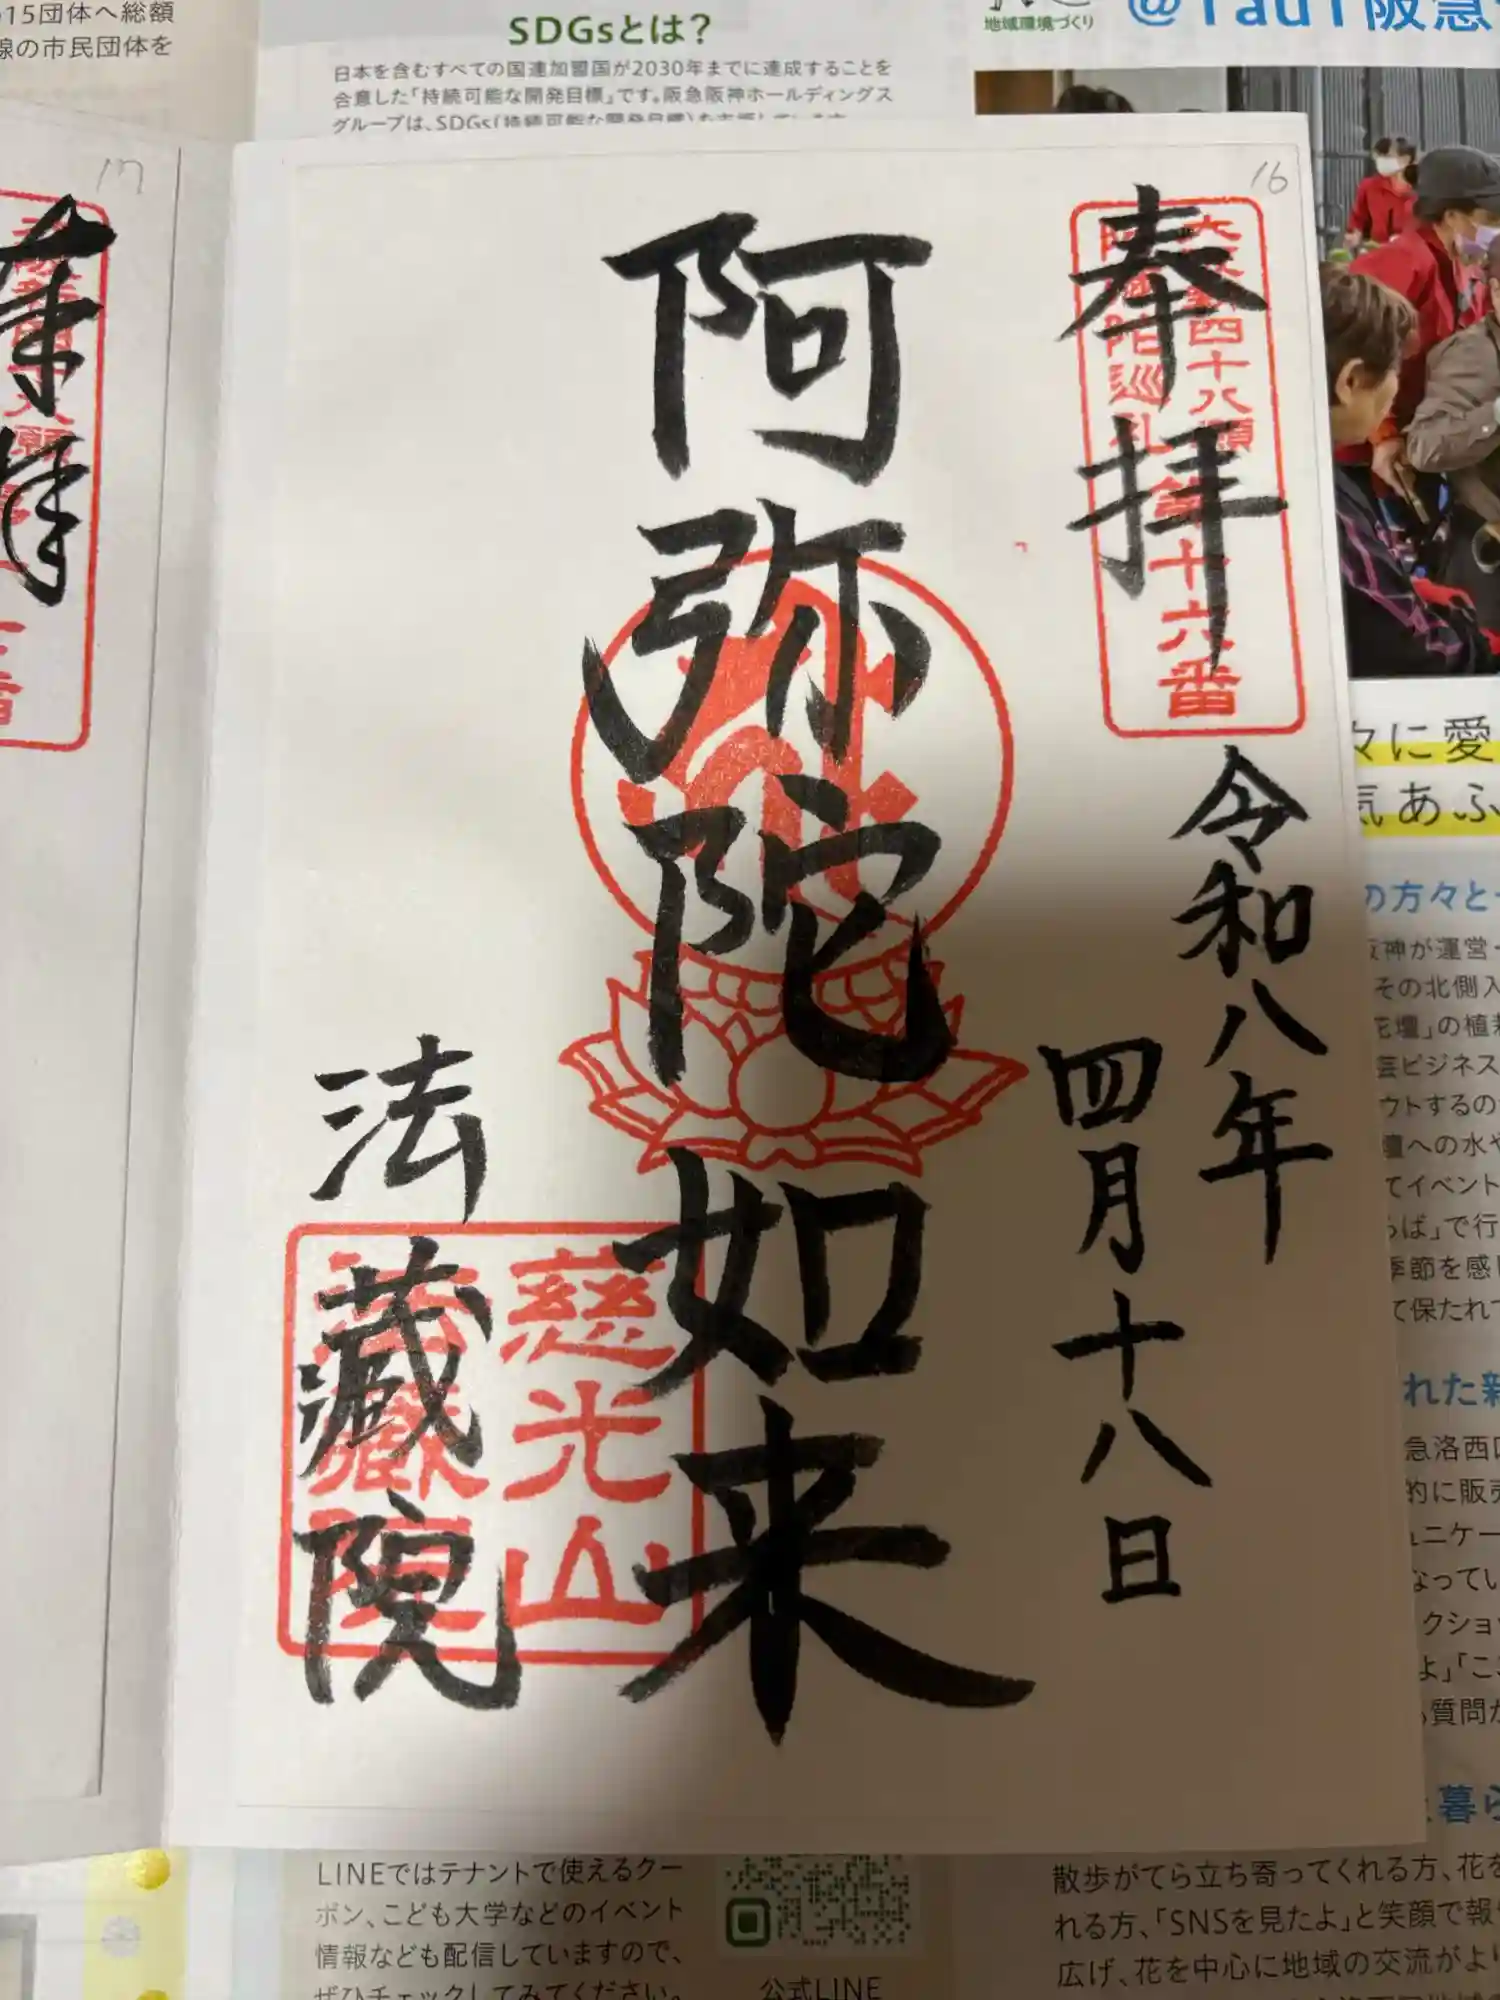 15団体へ総額
線の市民団体を
SDGsとは?
日本を含むすべての国連加盟国が2030年までに達成することを
合意した「持続可能な開発目標」です。阪急阪神ホールディングス
グループは、SDGs(持続可能な開発目標)を
地域環境づくり
17
16
奉拝
大阪新四十八願
阿弥陀巡礼 第十六番
令和八年
四月十八日
阿弥陀如来
法蔵院
慈光山
法蔵院
奉拝
々に愛
気あふ
の方々と
阪神が運営
その北側入
花壇」の植栽
芸ビジネス
ウトするの
壇への水や
てイベント
らば」で行
季節を感
て保たれて
れた新
急洛西口
的に販売
ュニケー
なってい
クション
よ」「こ
質問が
暮ら
LINEではテナントで使えるクー
ポン、こども大学などのイベント
情報なども配信していますので、
ぜひチェックしてみてください。
公式LINE
散歩がてら立ち寄ってくれる方、花を
れる方、「SNSを見たよ」と笑顔で報
広げ、花を中心に地域の交流がより